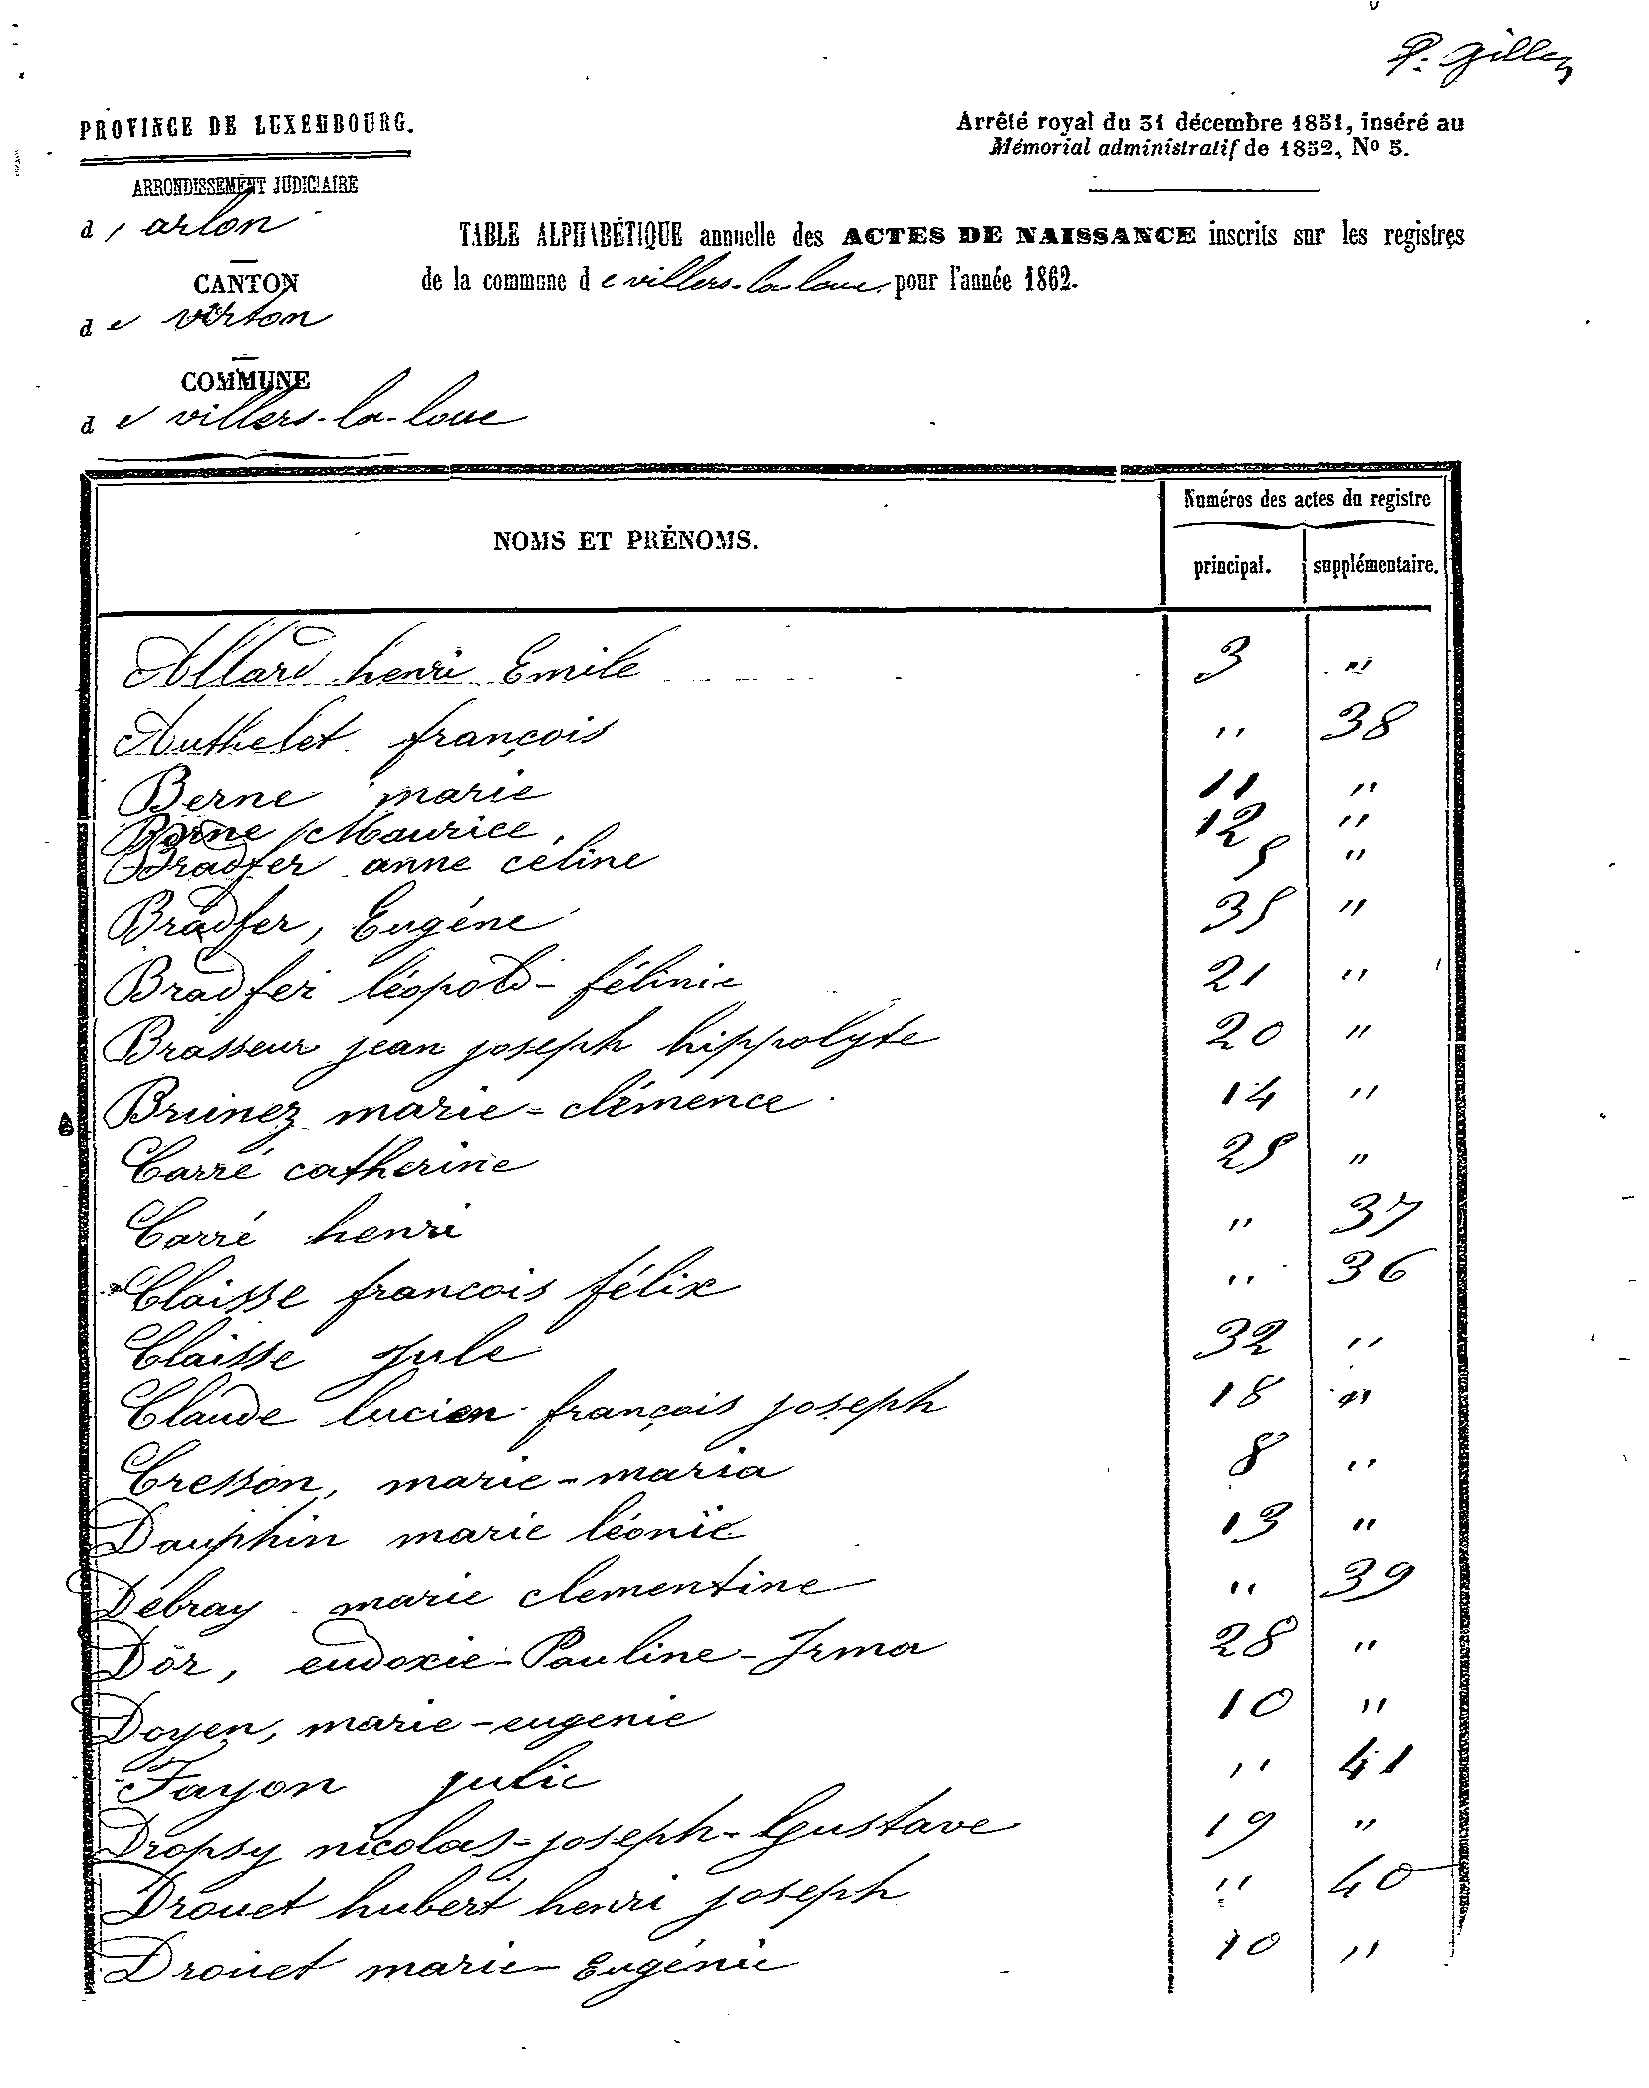 P. Gillen
PROVINCE DE LUXEMBOURG.
Arrêté royal du 31 décembre 1851, inséré au
Mémorial administratif de 1852, No 5.
ARRONDISSEMENT JUDICIAIRE
d'arlon
TABLE ALPHABÉTIQUE annuelle des ACTES DE NAISSANCE inscrits sur les registres
de la commune de villers-la-loue pour l'année 1862.
CANTON
de virton
COMMUNE
de villers-la-loue
NOMS ET PRÉNOMS.
Numéros des actes du registre
principal. supplémentaire.
Allard henri Emile 3 "
Authelet françois " 38
Berne marie 11 "
Berne Maurice 12 "
Bradfer anne céline 5 "
Bradfer, Eugéne 35 "
Bradfer léopold-félinie 21 "
Brasseur jean joseph hippolyte 20 "
Brunez marie-clémence 14 "
Carré catherine 25 "
Carré henri " 37
Claisse francois félix " 36
Claisse Jule 32 "
Claude lucien françois joseph 18 "
Cresson, marie-maria 8 "
Dauphin marie léonie 13 "
Debray marie clementine " 39
Dôr, eudoxie-Pauline-Irma 28 "
Doyen, marie-eugenie 10 "
Fayon julie " 41
Dropsy nicolas-joseph-Gustave 19 "
Drouet hubert henri joseph " 40
Drouet marie Eugénie 10 "